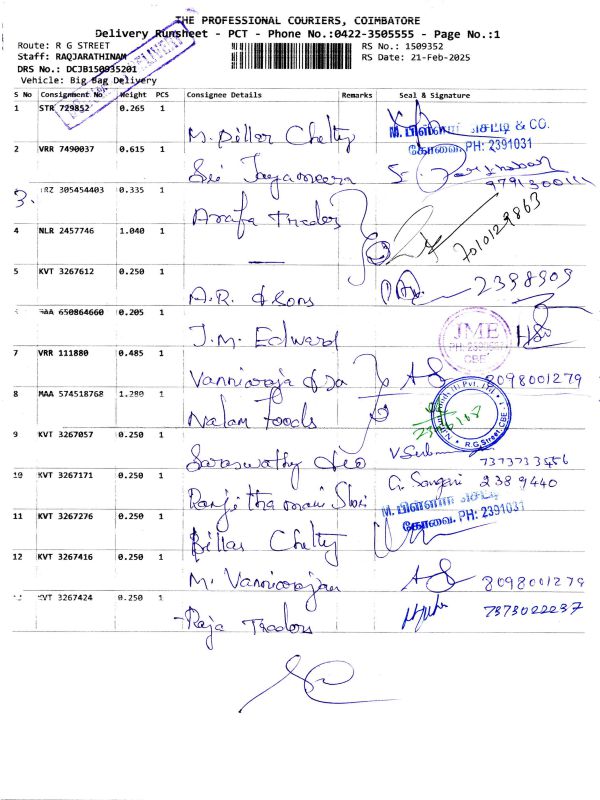 THE PROFESSIONAL COURIERS, COIMBATORE
Delivery Runsheet - PCT - Phone No.:0422-3505555 - Page No.:1
Route: R G STREET
RS No.: 1509352
Staff: RAQJARATHINAM
RS Date: 21-Feb-2025
DRS No.: DCJB150935201
Vehicle: Big Bag Delivery
S No Consignment No Weight PCS Consignee Details Remarks Seal & Signature
1 STR 729852 0.265 1
M. Pillar Chetty
M. பிள்ளார் செட்டி & CO.
கோவை. PH: 2391031
2 VRR 7490037 0.615 1
Sri Jayameera
9791300111
3. TRZ 305454403 0.335 1
Arafa Traders
7010129863
4 NLR 2457746 1.040 1
5 KVT 3267612 0.250 1
A.R. & Sons
2398909
MAA 650864660 0.205 1
J.M. Edward
JME
CBE
7 VRR 111880 0.485 1
8098001279
8 MAA 574518768 1.280 1
Nalam Foods
R.G.Street, CBE
9 KVT 3267057 0.250 1
Saraswathy
7373733456
10 KVT 3267171 0.250 1
G. Sangari 2389440
M. பிள்ளார் செட்டி
கோவை. PH: 2391031
11 KVT 3267276 0.250 1
Pillar Chetty
12 KVT 3267416 0.250 1
M. Vannirajan
8098001279
KVT 3267424 0.250 1
Raja Traders
7373022237